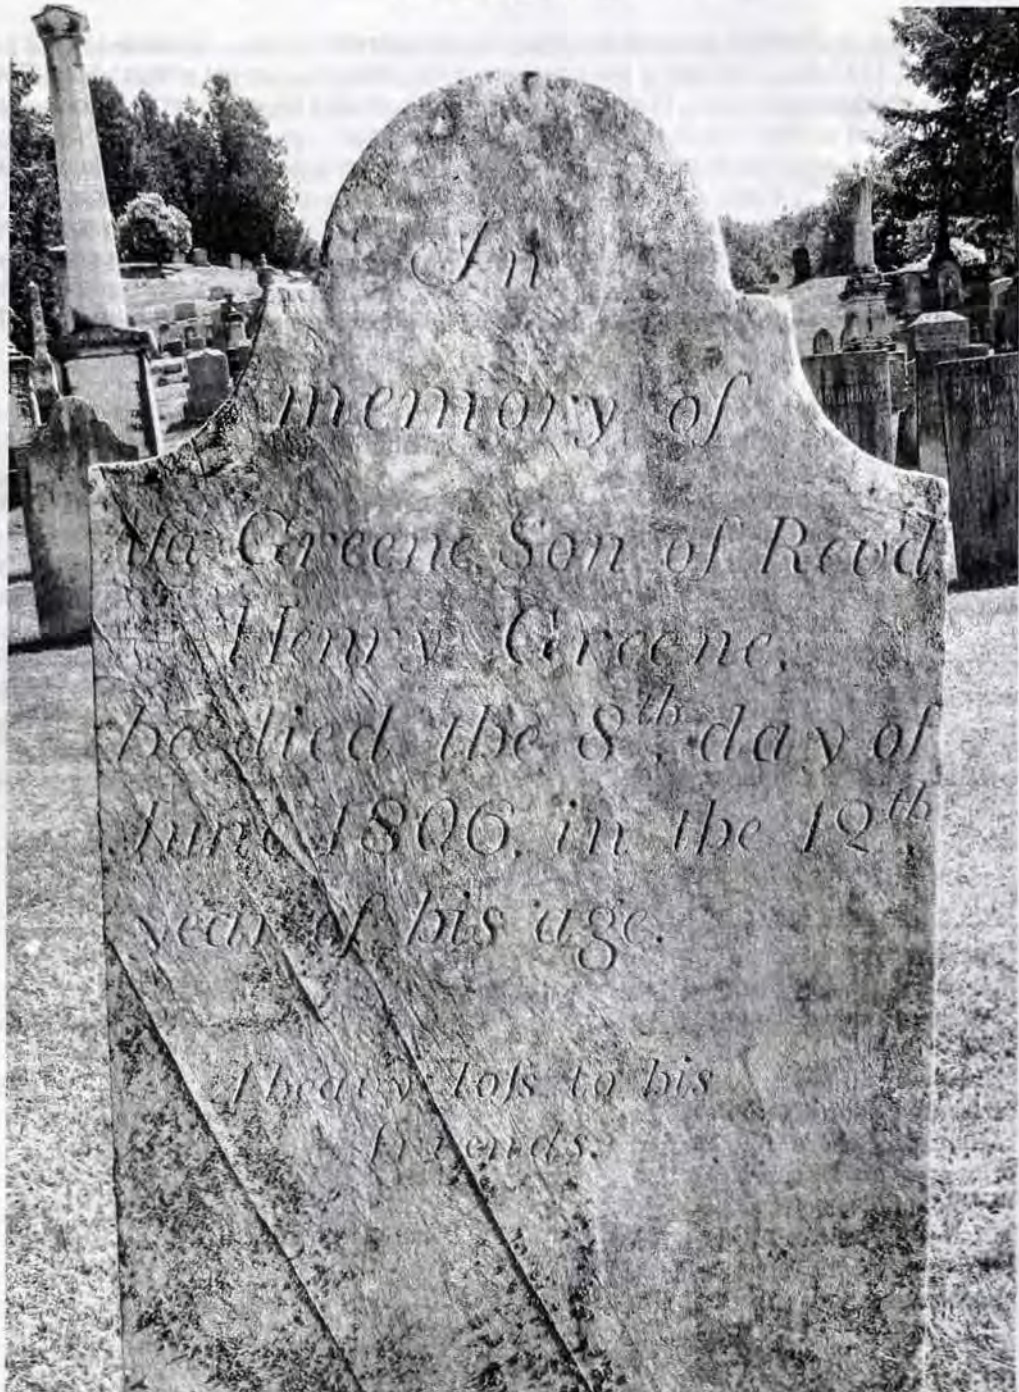 In
memory of
Greene Son of Revd.
Henry Greene,
he died the 8th, day of
June 1806, in the 12th
year of his age.
A heavy loſs to his
friends.